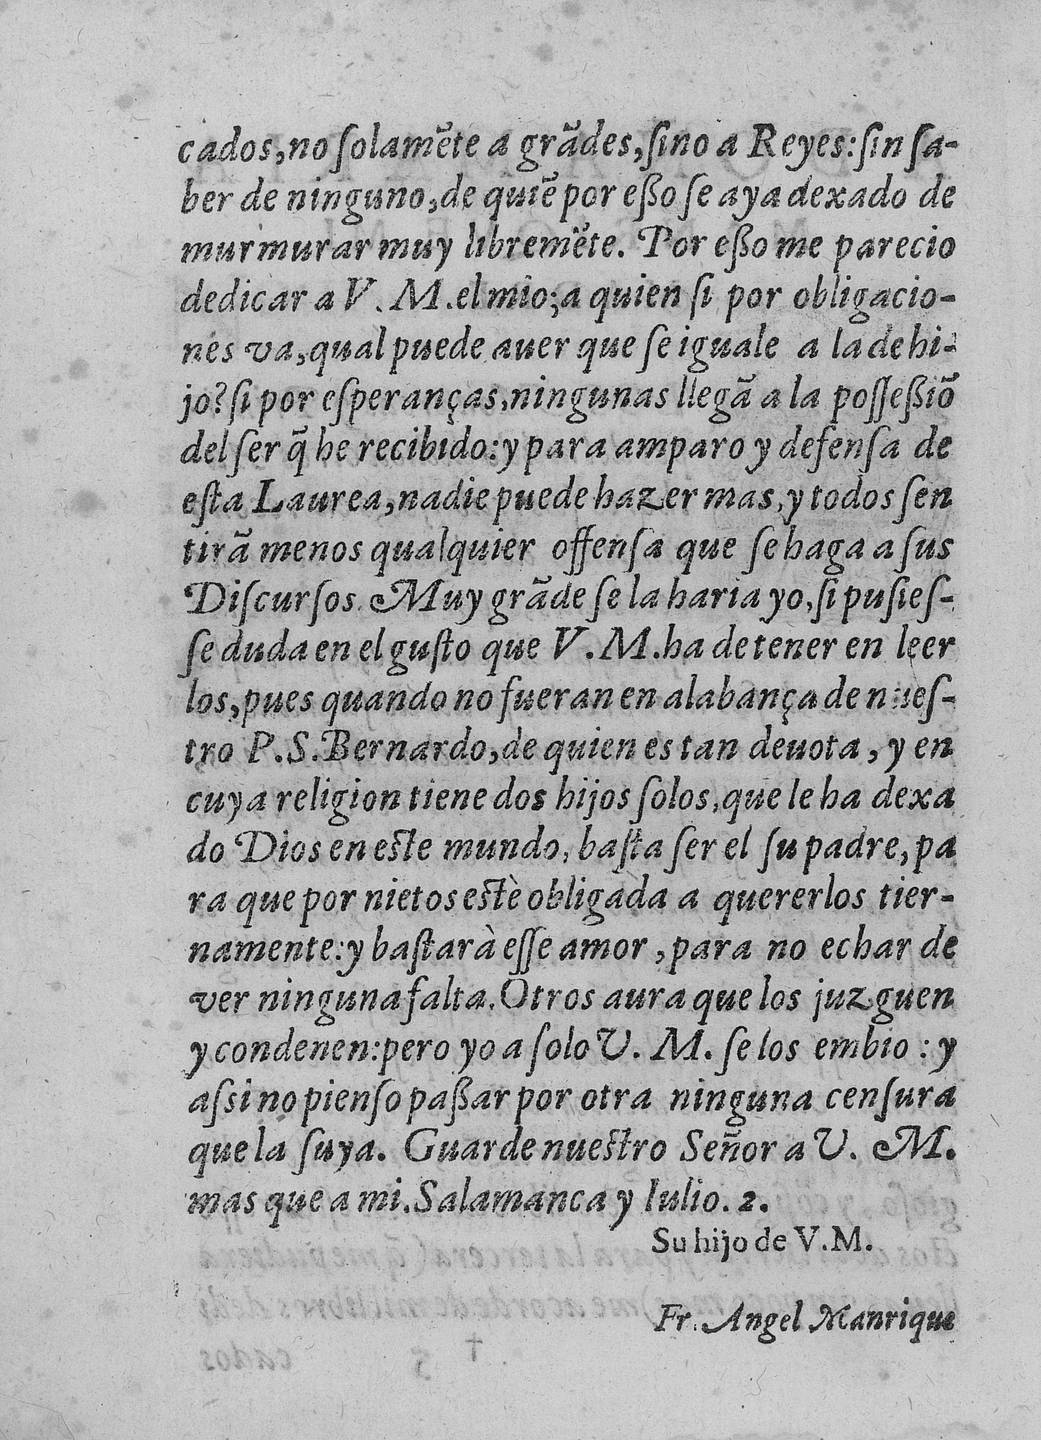 cados,no ſolamẽte a grãdes,ſino a Reyes:ſin ſa-
ber de ninguno,de quiẽ por eßo ſe aya dexado de
murmurar muy libremẽte. Por eßo me parecio
dedicar a V. M.el mio;a quien ſi por obligacio-
nes va,qual puede auer que ſe iguale a la de hi-
jo? ſi por eſperanças,ningunas llegã a la poſſeßiõ
del ſer q̃ he recibido:y para amparo y defenſa de
eſta Laurea,nadie puede hazer mas,y todos ſen
tirã menos qualquier offenſa que ſe haga a ſus
Diſcurſos. Muy grãde ſe la haria yo,ſi puſieſ-
ſe duda en el guſto que V.M.ha de tener en leer
los,pues quando no fueran en alabança de nueſ-
tro P.S.Bernardo,de quien es tan deuota,y en
cuya religion tiene dos hijos ſolos,que le ha dexa
do Dios en eſte mundo,baſta ſer el ſu padre,pa
ra que por nietos eſtè obligada a quererlos tier-
namente:y baſtarà eſſe amor,para no echar de
ver ninguna falta.Otros aura que los juzguen
y condenen:pero yo a ſolo V. M. ſe los embio : y
aſsi no pienſo paßar por otra ninguna cenſura
que la ſuya. Guarde nueſtro Señor a V. M.
mas que a mi.Salamanca y Iulio.2.
Su hijo de V.M.
Fr. Angel Manrique